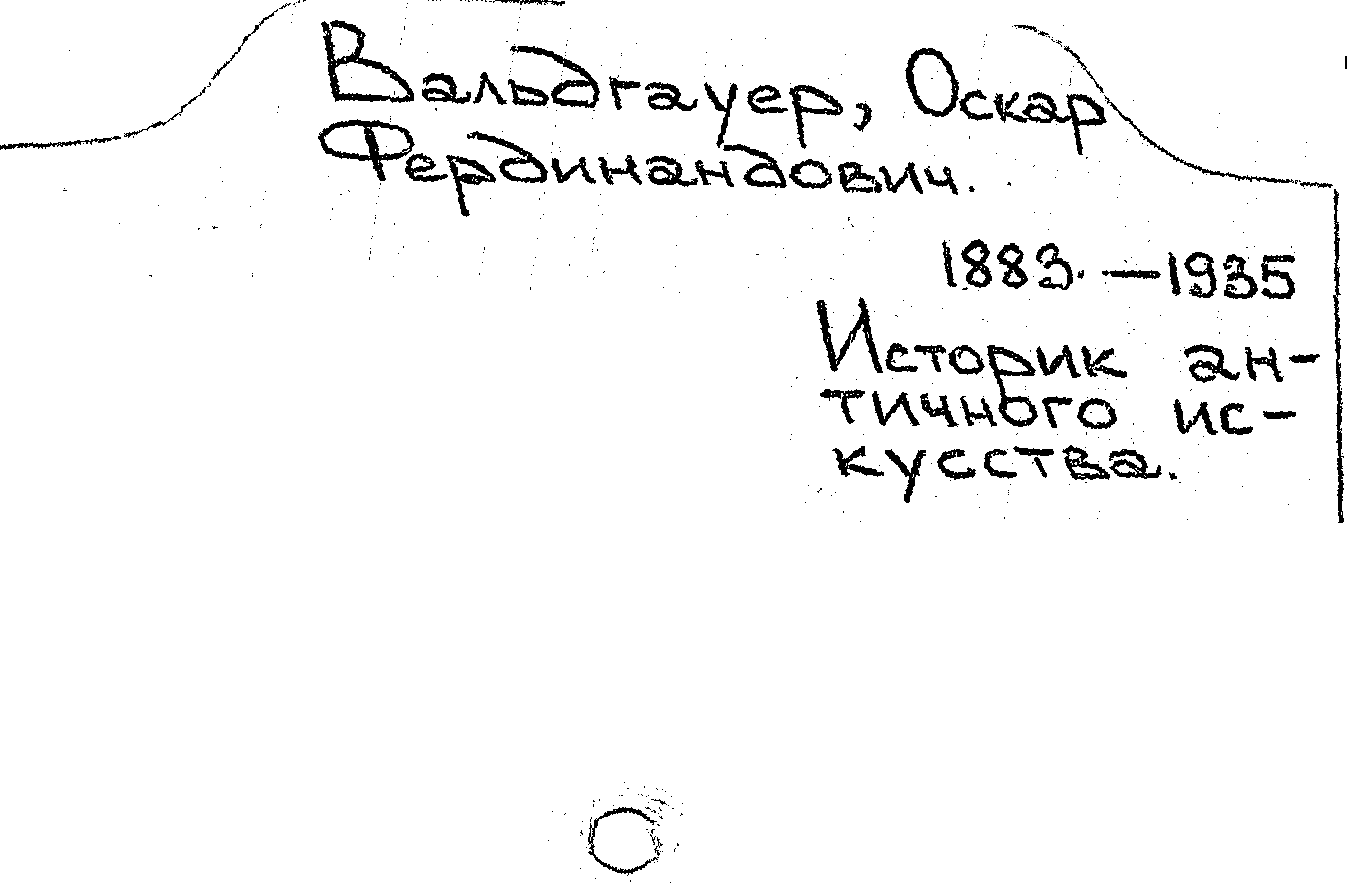 Вальдгауер, Оскар
Фердинандович.
1883. — 1935
Историк ан-
тичного ис-
кусства.